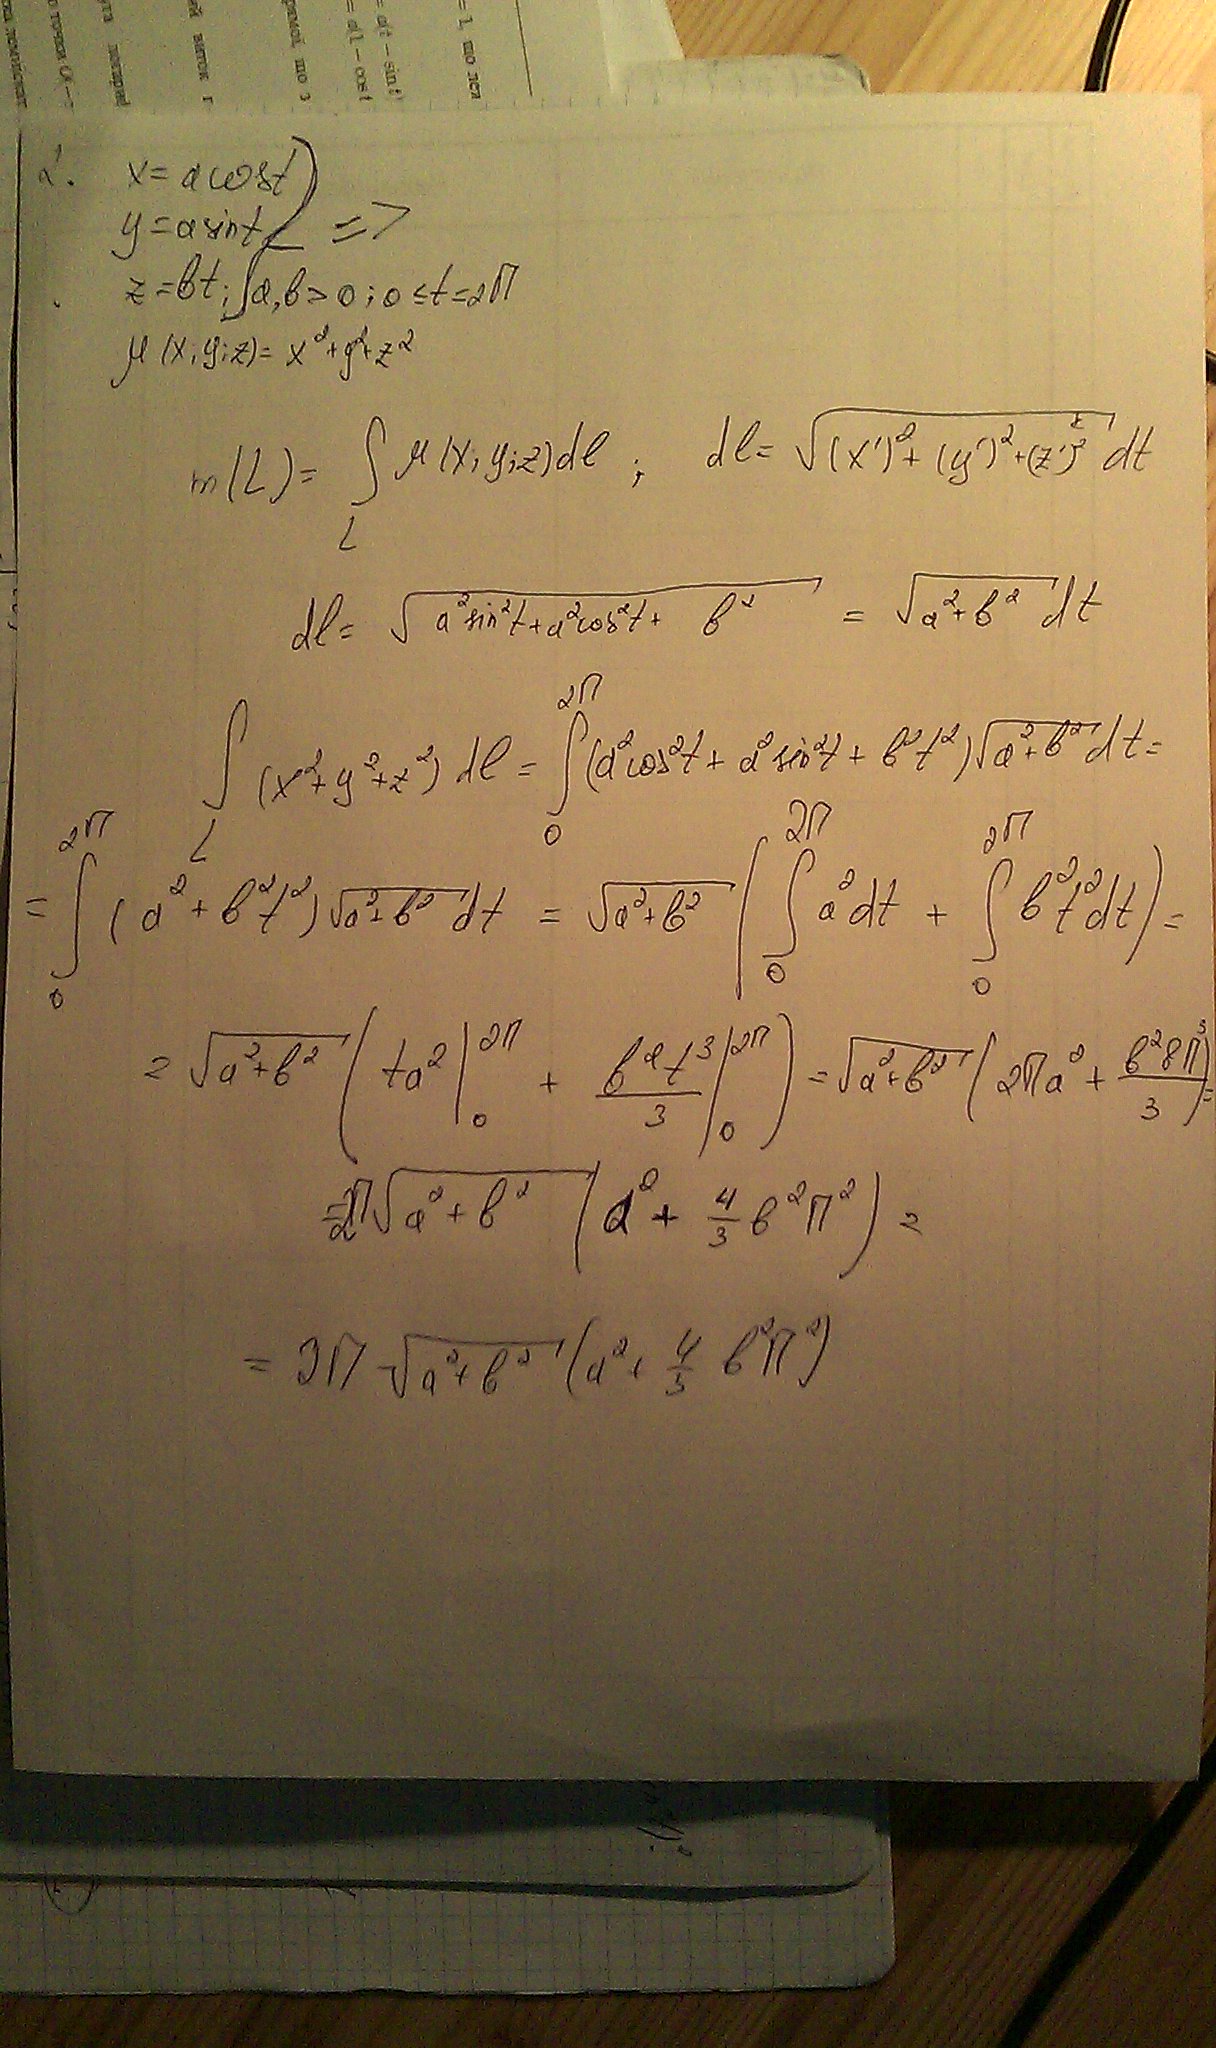 = 1, що лєж
= at - sin t
= a(1 - cos t
2. x = a cos t
y = a sin t =>
z = bt; a, b > 0; 0 ≤ t = 2π
μ(x; y; z) = x² + y² + z²
m(L) = ∫_L μ(x; y; z) dl ; dl = √((x')² + (y')² + (z')²) dt
dl = √(a² sin² t + a² cos² t + b²) = √(a² + b²) dt
∫_L (x² + y² + z²) dl = ∫_0^{2π} (a² cos² t + a² sin² t + b² t²) √(a² + b²) dt =
= ∫_0^{2π} (a² + b² t²) √(a² + b²) dt = √(a² + b²) (∫_0^{2π} a² dt + ∫_0^{2π} b² t² dt) =
= √(a² + b²) (ta² |_0^{2π} + b² t³/3 |_0^{2π}) = √(a² + b²) (2πa² + b² 8π³/3) =
= 2π √(a² + b²) (a² + 4/3 b² π²) =
= 2π √(a² + b²) (a² + 4/3 b² π²)